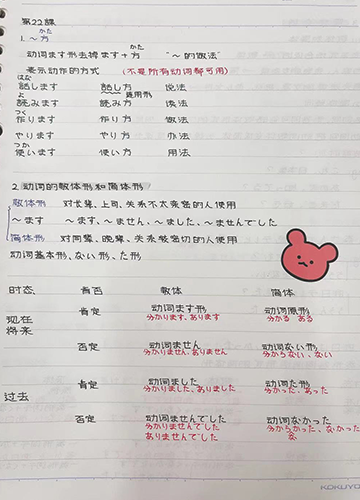 第22課
かた
1. ～方
かた
动词ます形去掉ます+方 "～的做法"
表示动作的方式 (不是所有动词都可用)
はな
話します 話し方 说法
よ 兼用形
読みます 読み方 读法
つく
作ります 作り方 做法
やります やり方 办法
つか
使います 使い方 用法
2. 动词的敬体形和简体形
敬体形 对长辈、上司、关系不太亲密的人使用
～ます ～ます、～ません、～ました、～ませんでした
简体形 对同辈、晚辈、关系较密切的人使用
动词基本形、ない形、た形
时态 肯否 敬体 简体
现在 肯定 动词ます形 动词原形
将来 分かります、あります 分かる ある
否定 动词ません 动词ない形
分かりません、ありません 分からない、ない
过去 肯定 动词ました 动词た形
分かりました、ありました 分かった、あった
否定 动词ませんでした 动词なかった
分かりませんでした 分からかった、なかった
ありませんでした な
KOKUYO